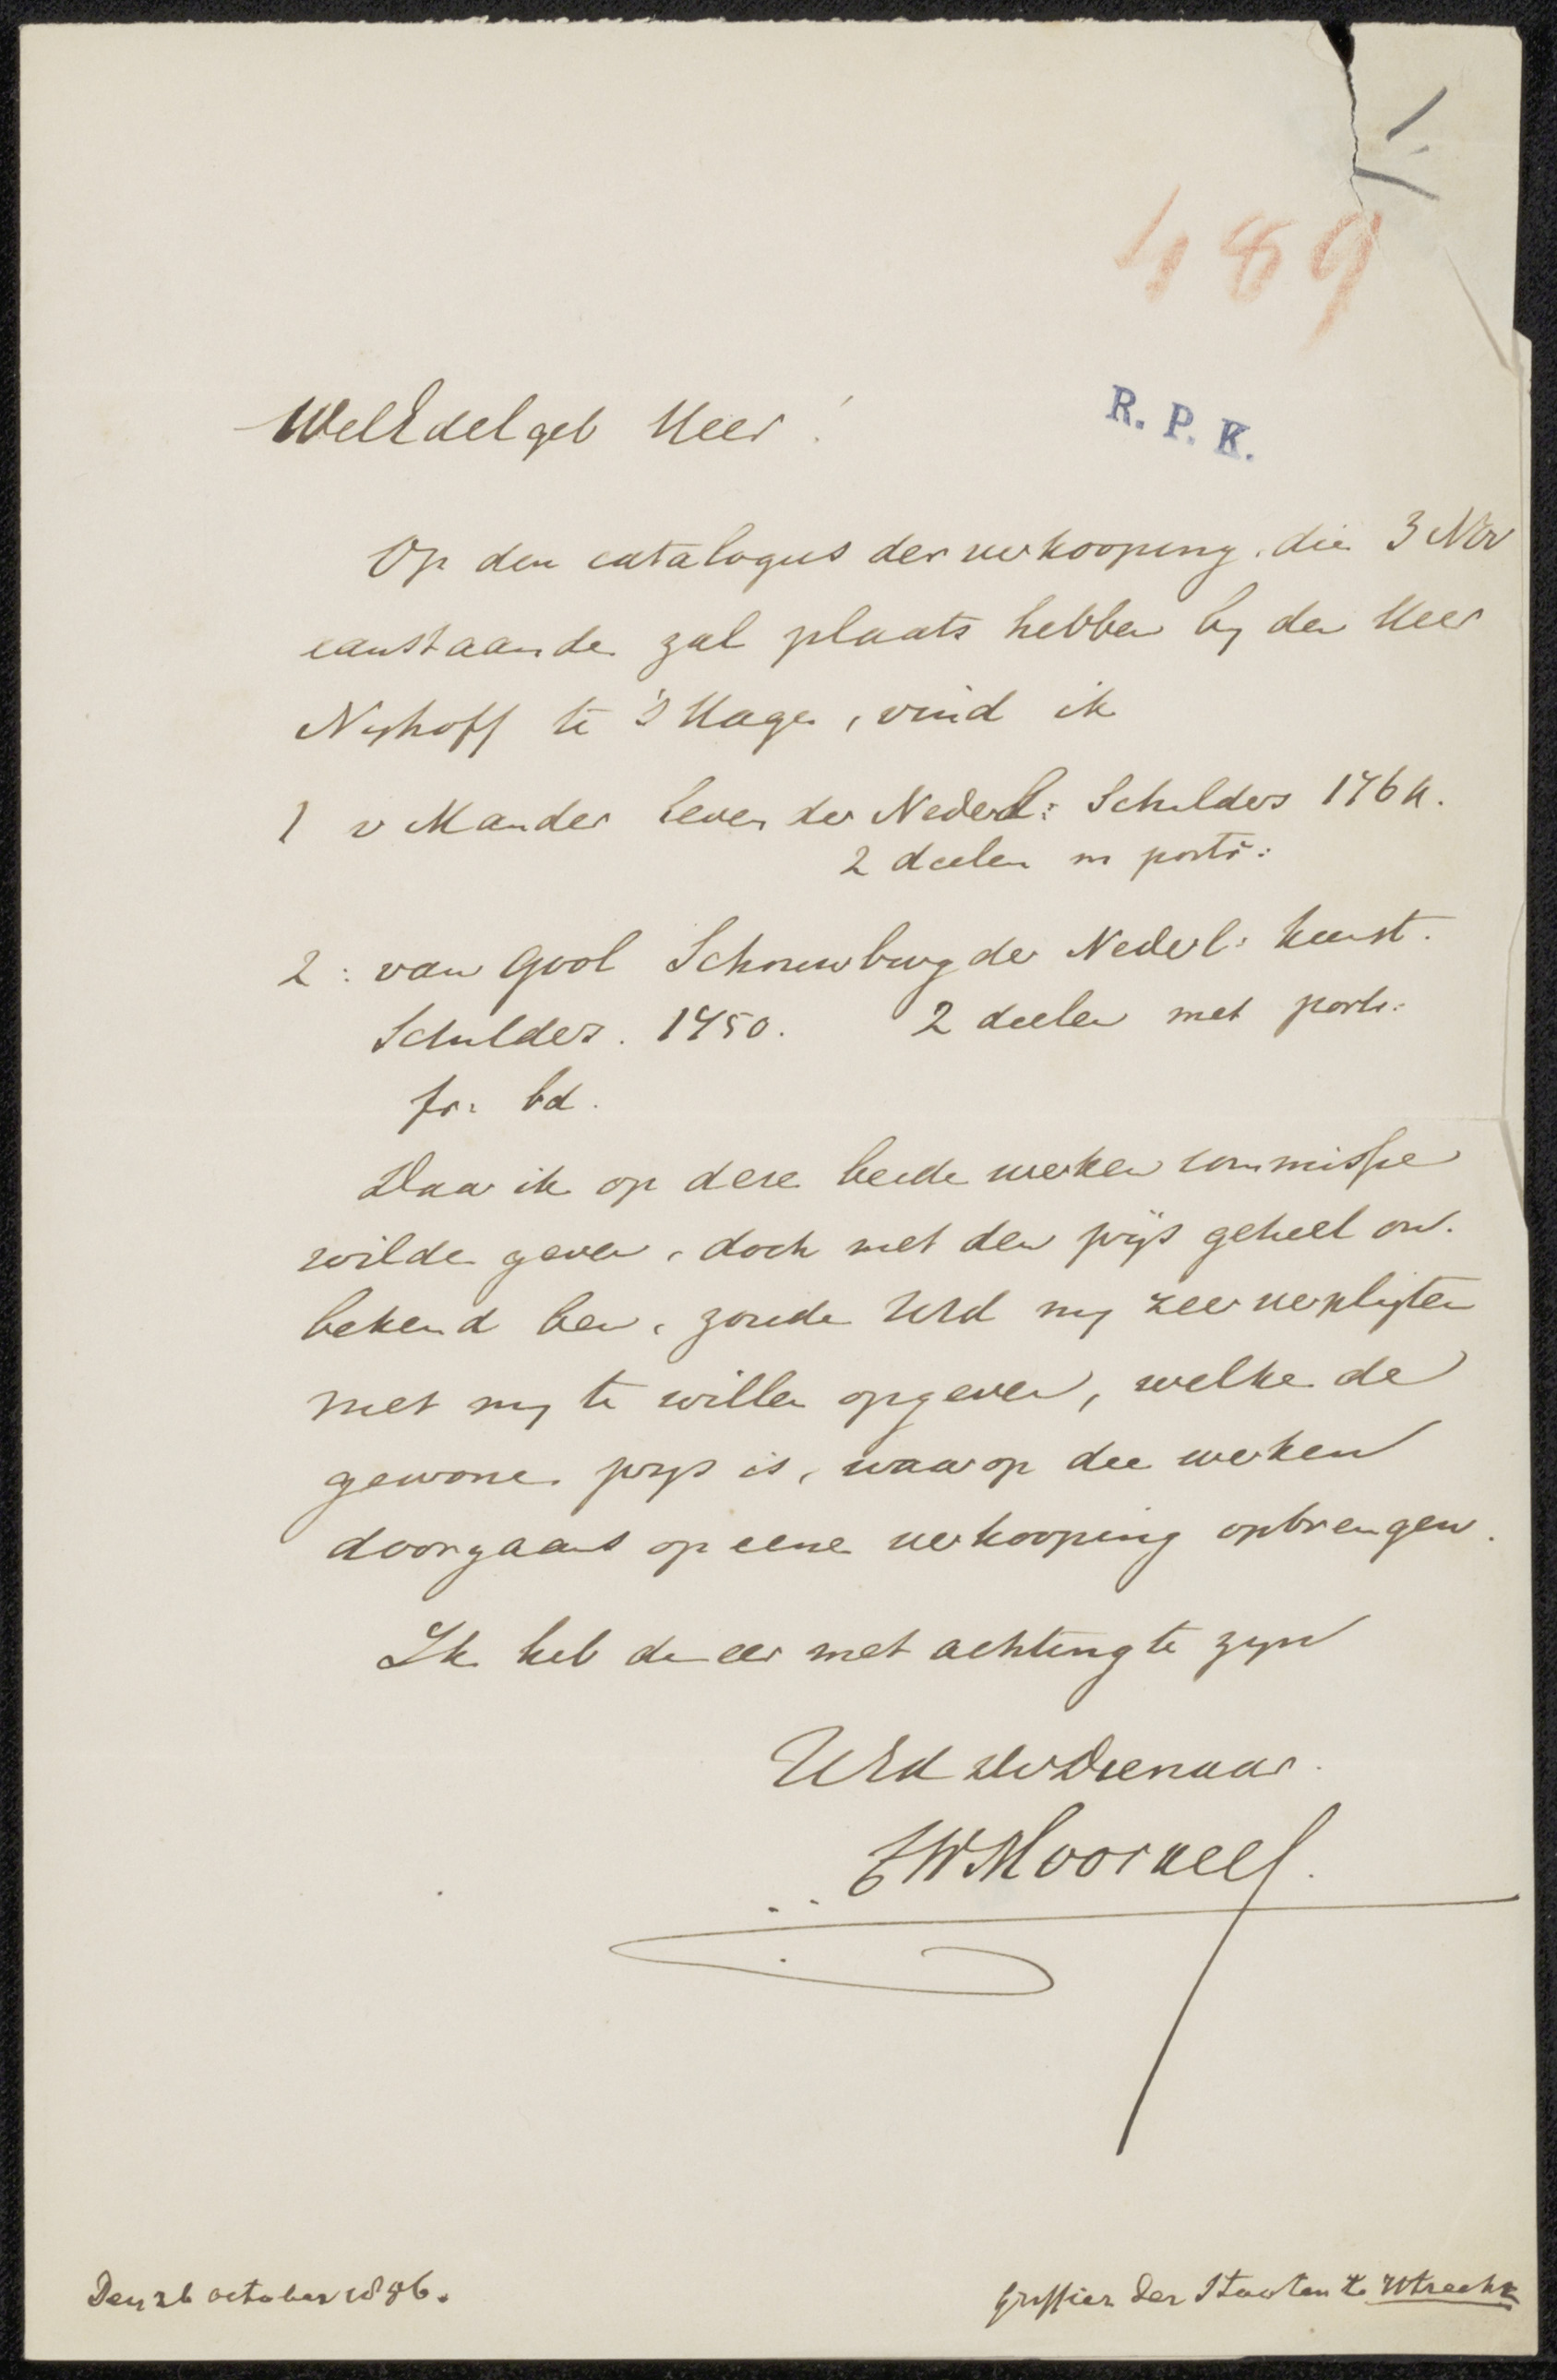 489
R. P. K.
WelEdelgeb Heer!
Op den catalogus der verkooping, die 3 Nov
aanstaande zal plaats hebben by den Heer
Nyhoff te 's Hage, vind ik
1 v Mander Leven der Nederl: Schilders 1764.
2 deelen m portr:
2: van Gool Schouwburg der Nederl: Kunst.
Schilders. 1750. 2 deelen met portr:
fr: bd.
Daar ik op deze beide werken commissie
wilde geven, doch met den prijs geheel on-
bekend ben, zoude UEd my zeer verpligten
met my te willen opgeven, welke de
gewone prys is, waarop die werken
doorgaans op eene verkooping opbrengen.
Ik heb de eer met achting te zyn
UEd dw Dienaar.
Den 26 october 1886.
Griffier der Staaten te Utrecht